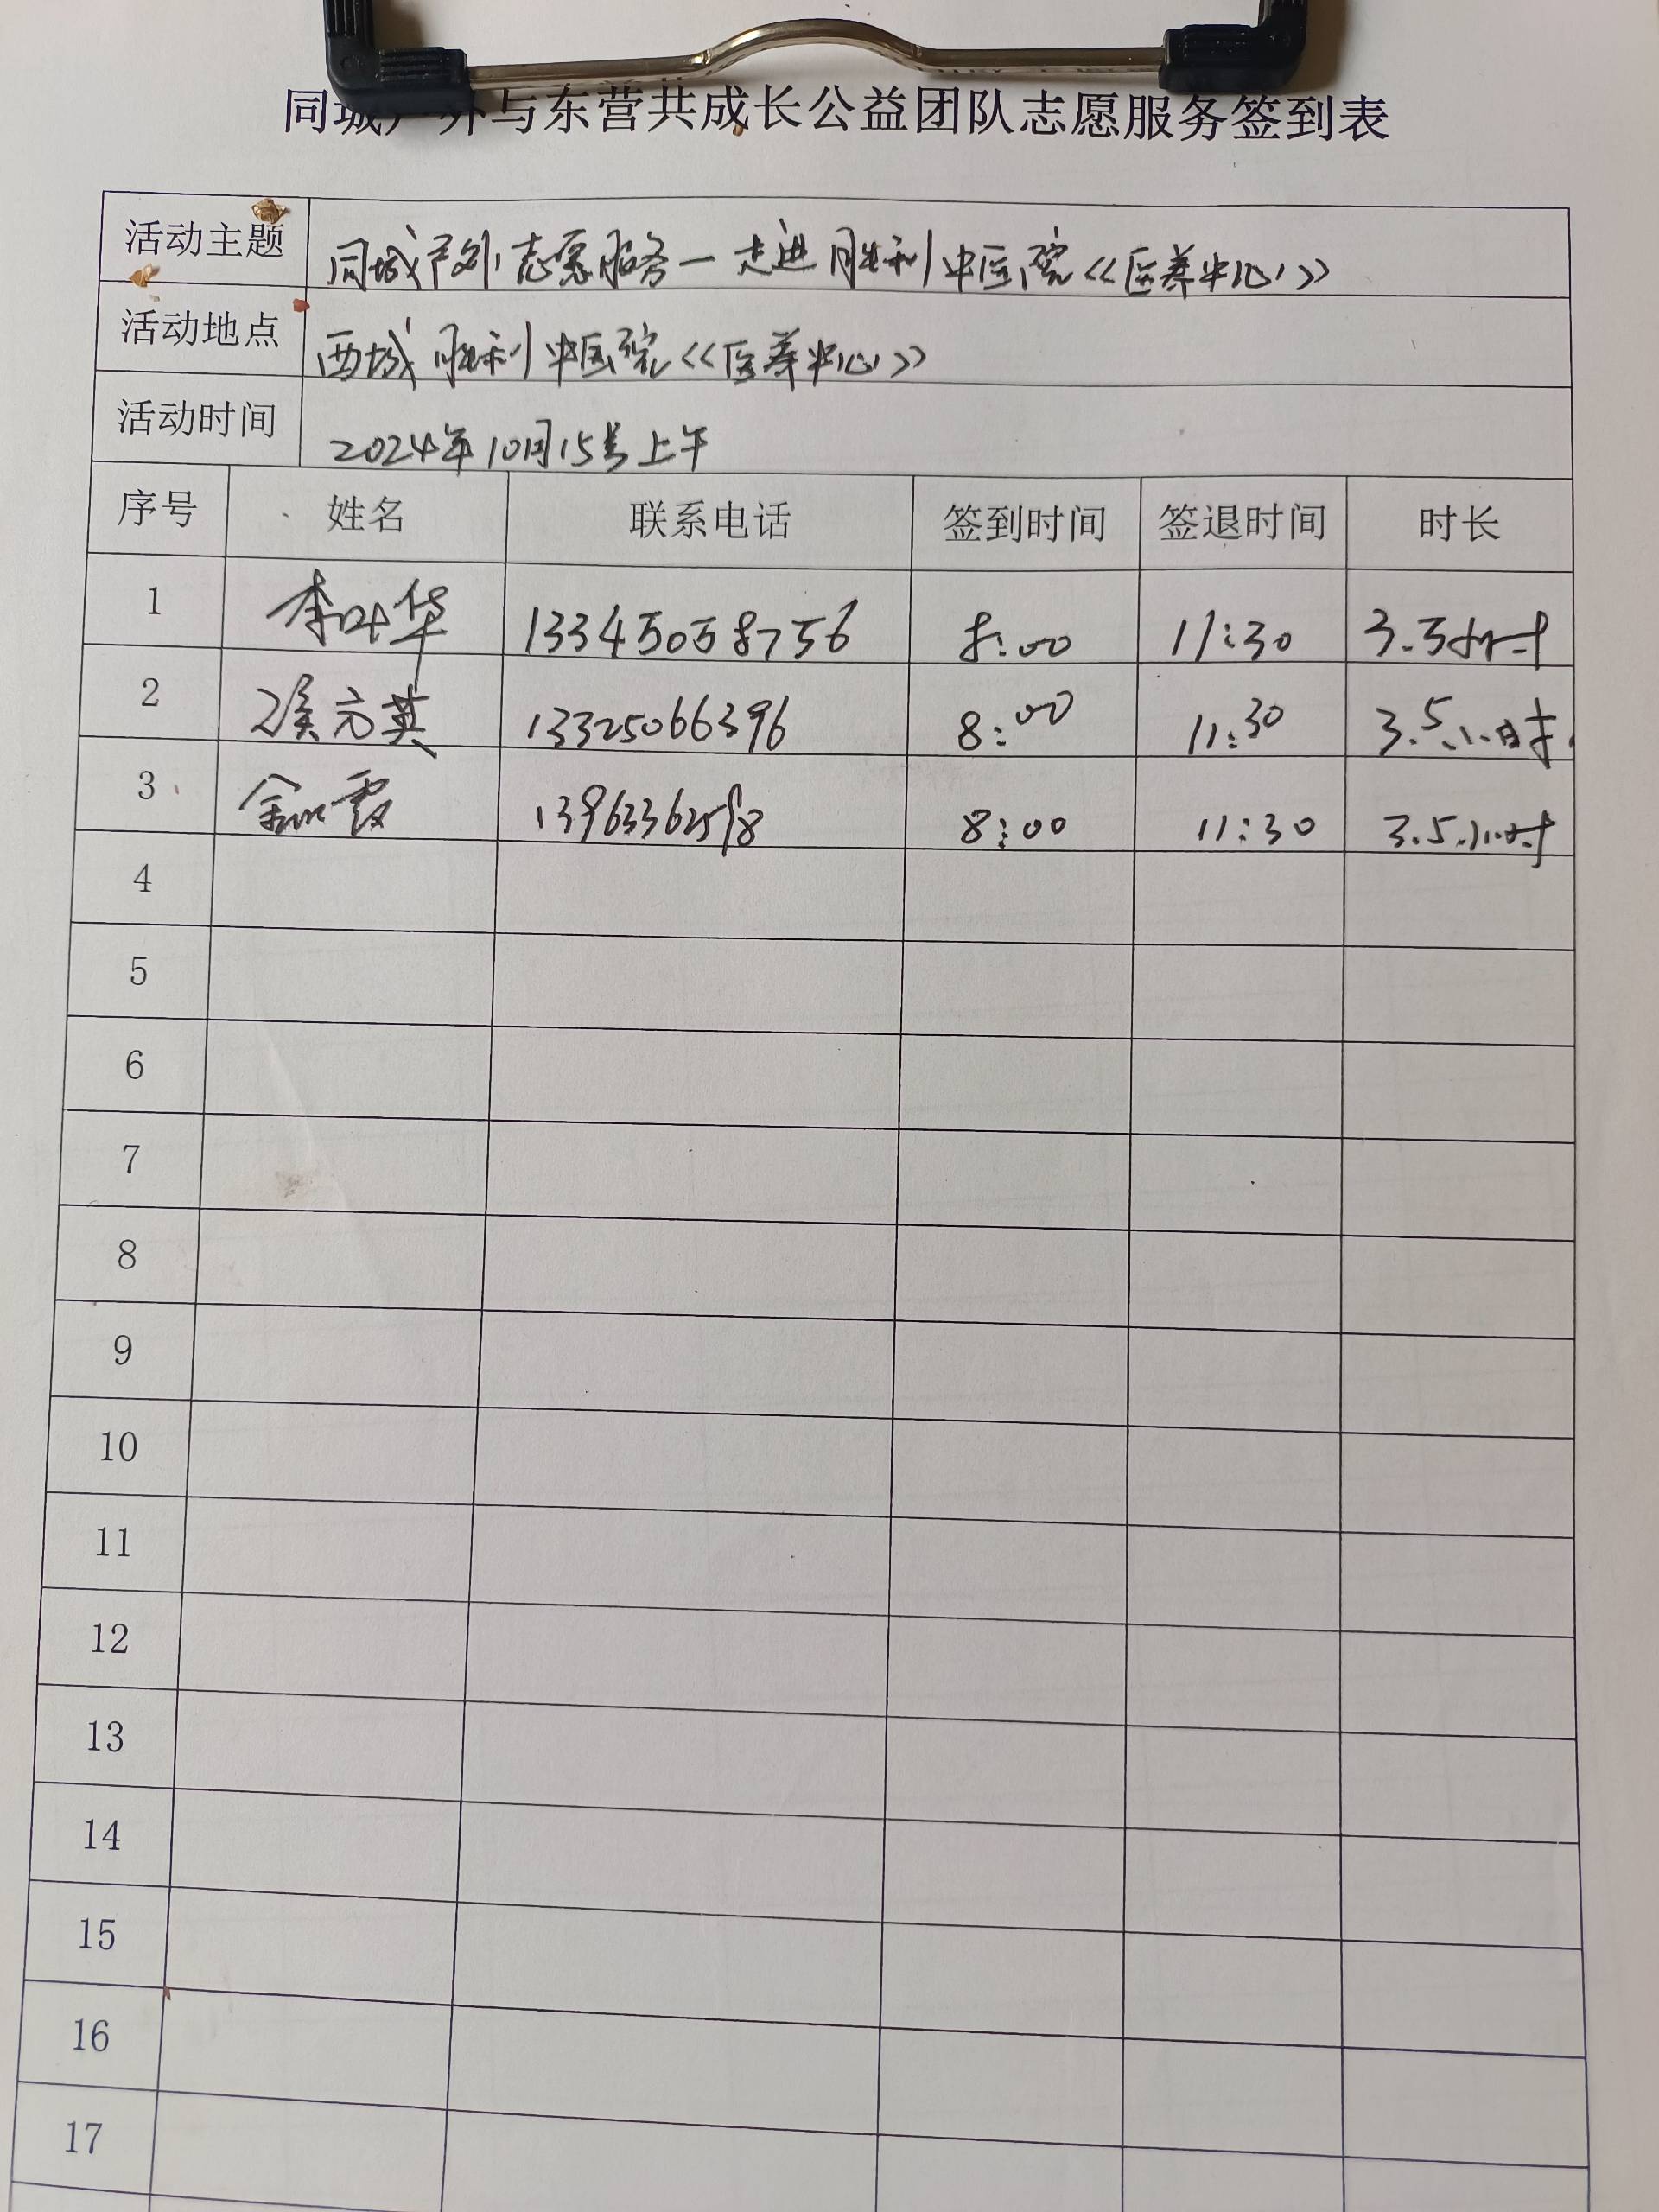 同城户外与东营共成长公益团队志愿服务签到表
活动主题 同城户外志愿服务一走进胜利中医院<<医养中心>>
活动地点 西城胜利中医院<<医养中心>>
活动时间 2024年10月15号上午
序号 姓名 联系电话 签到时间 签退时间 时长
1 李叶华 13345058756 8:00 11:30 3.5小时
2 侯元英 13325066396 8:00 11:30 3.5小时
3 霞 13963362598 8:00 11:30 3.5小时
4
5
6
7
8
9
10
11
12
13
14
15
16
17